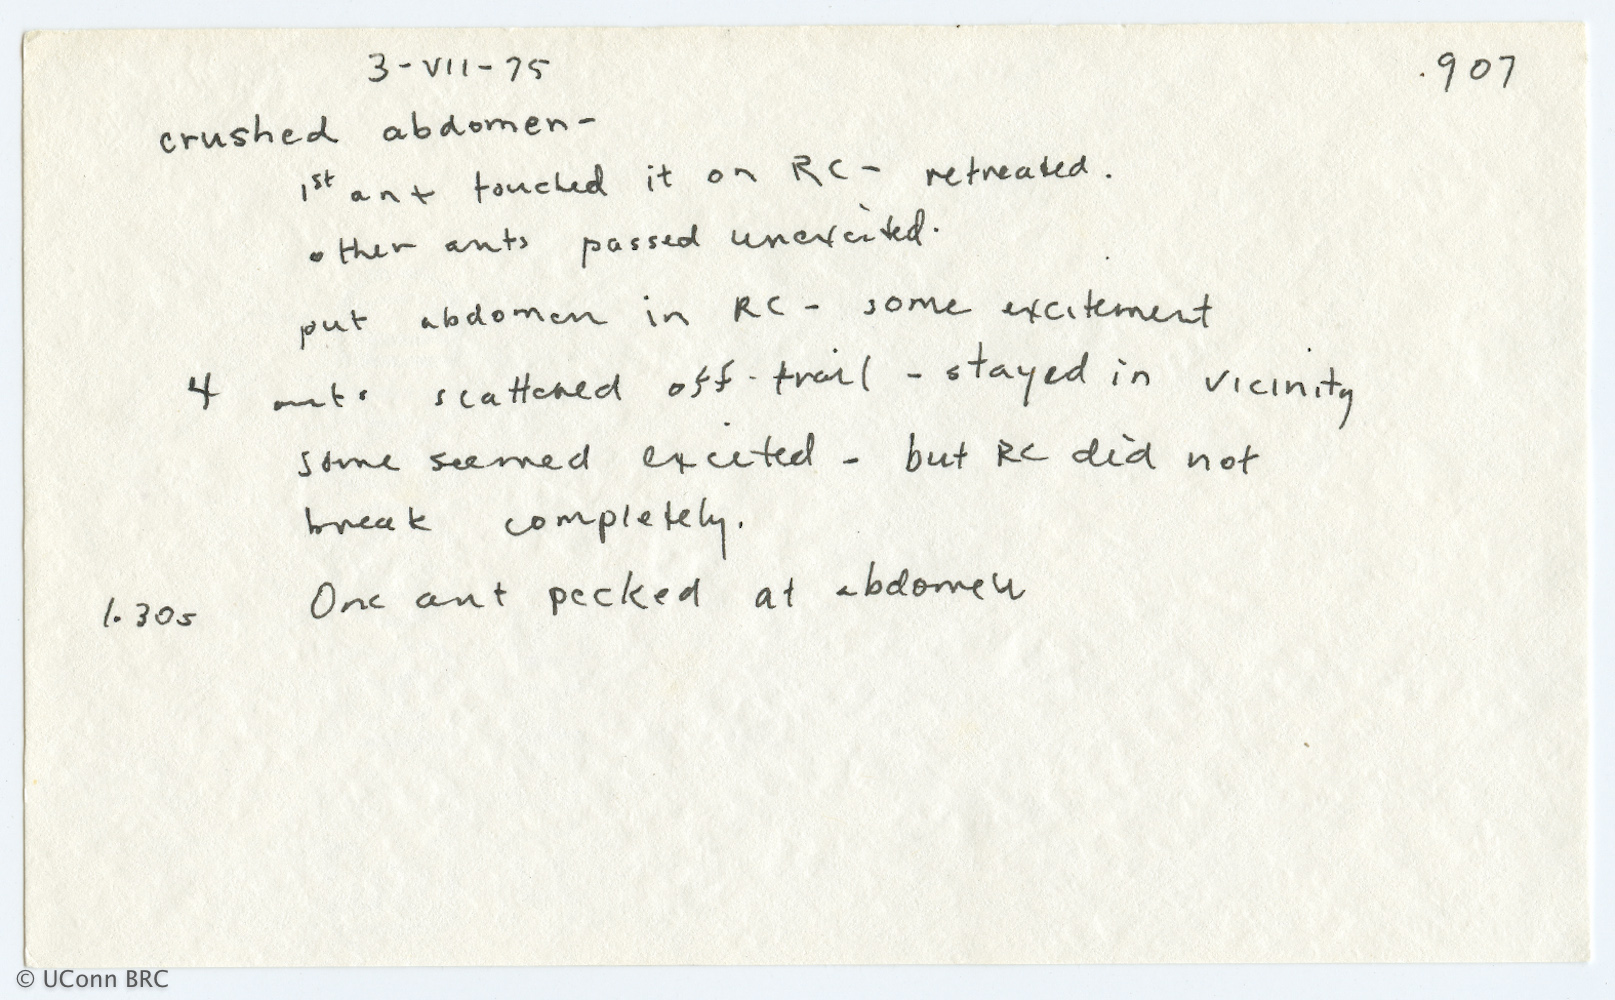 3-VII-75 .907
crushed abdomen-
1st ant touched it on RC - retreated.
other ants passed unexcited.
put abdomen in RC - some excitement
4 ants scattered off-trail - stayed in vicinity
some seemed excited - but RC did not
break completely.
1.30s One ant pecked at abdomen
© UConn BRC